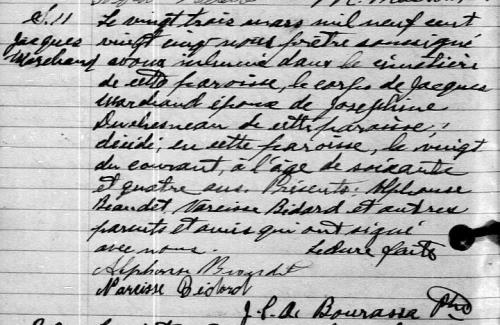 S. 11 Le vingt trois mars mil neuf cent
Jacques vingt cinq nous prêtre soussigné
Marchand avons inhumé dans le cimetière
de cette paroisse, le corps de Jacques
Marchand époux de Josephine
Duchesneau de cette paroisse,
décédé, en cette paroisse, le vingt
du courant, à l'âge de soixante
et quatre ans. Présents: Alphonse
Beaudet, Narcisse Bédard et autres
parents et amis qui ont signé
avec nous. Lecture faite
Alphonse Beaudet
Narcisse Bédard
J. C. A. Bourassa Ptre